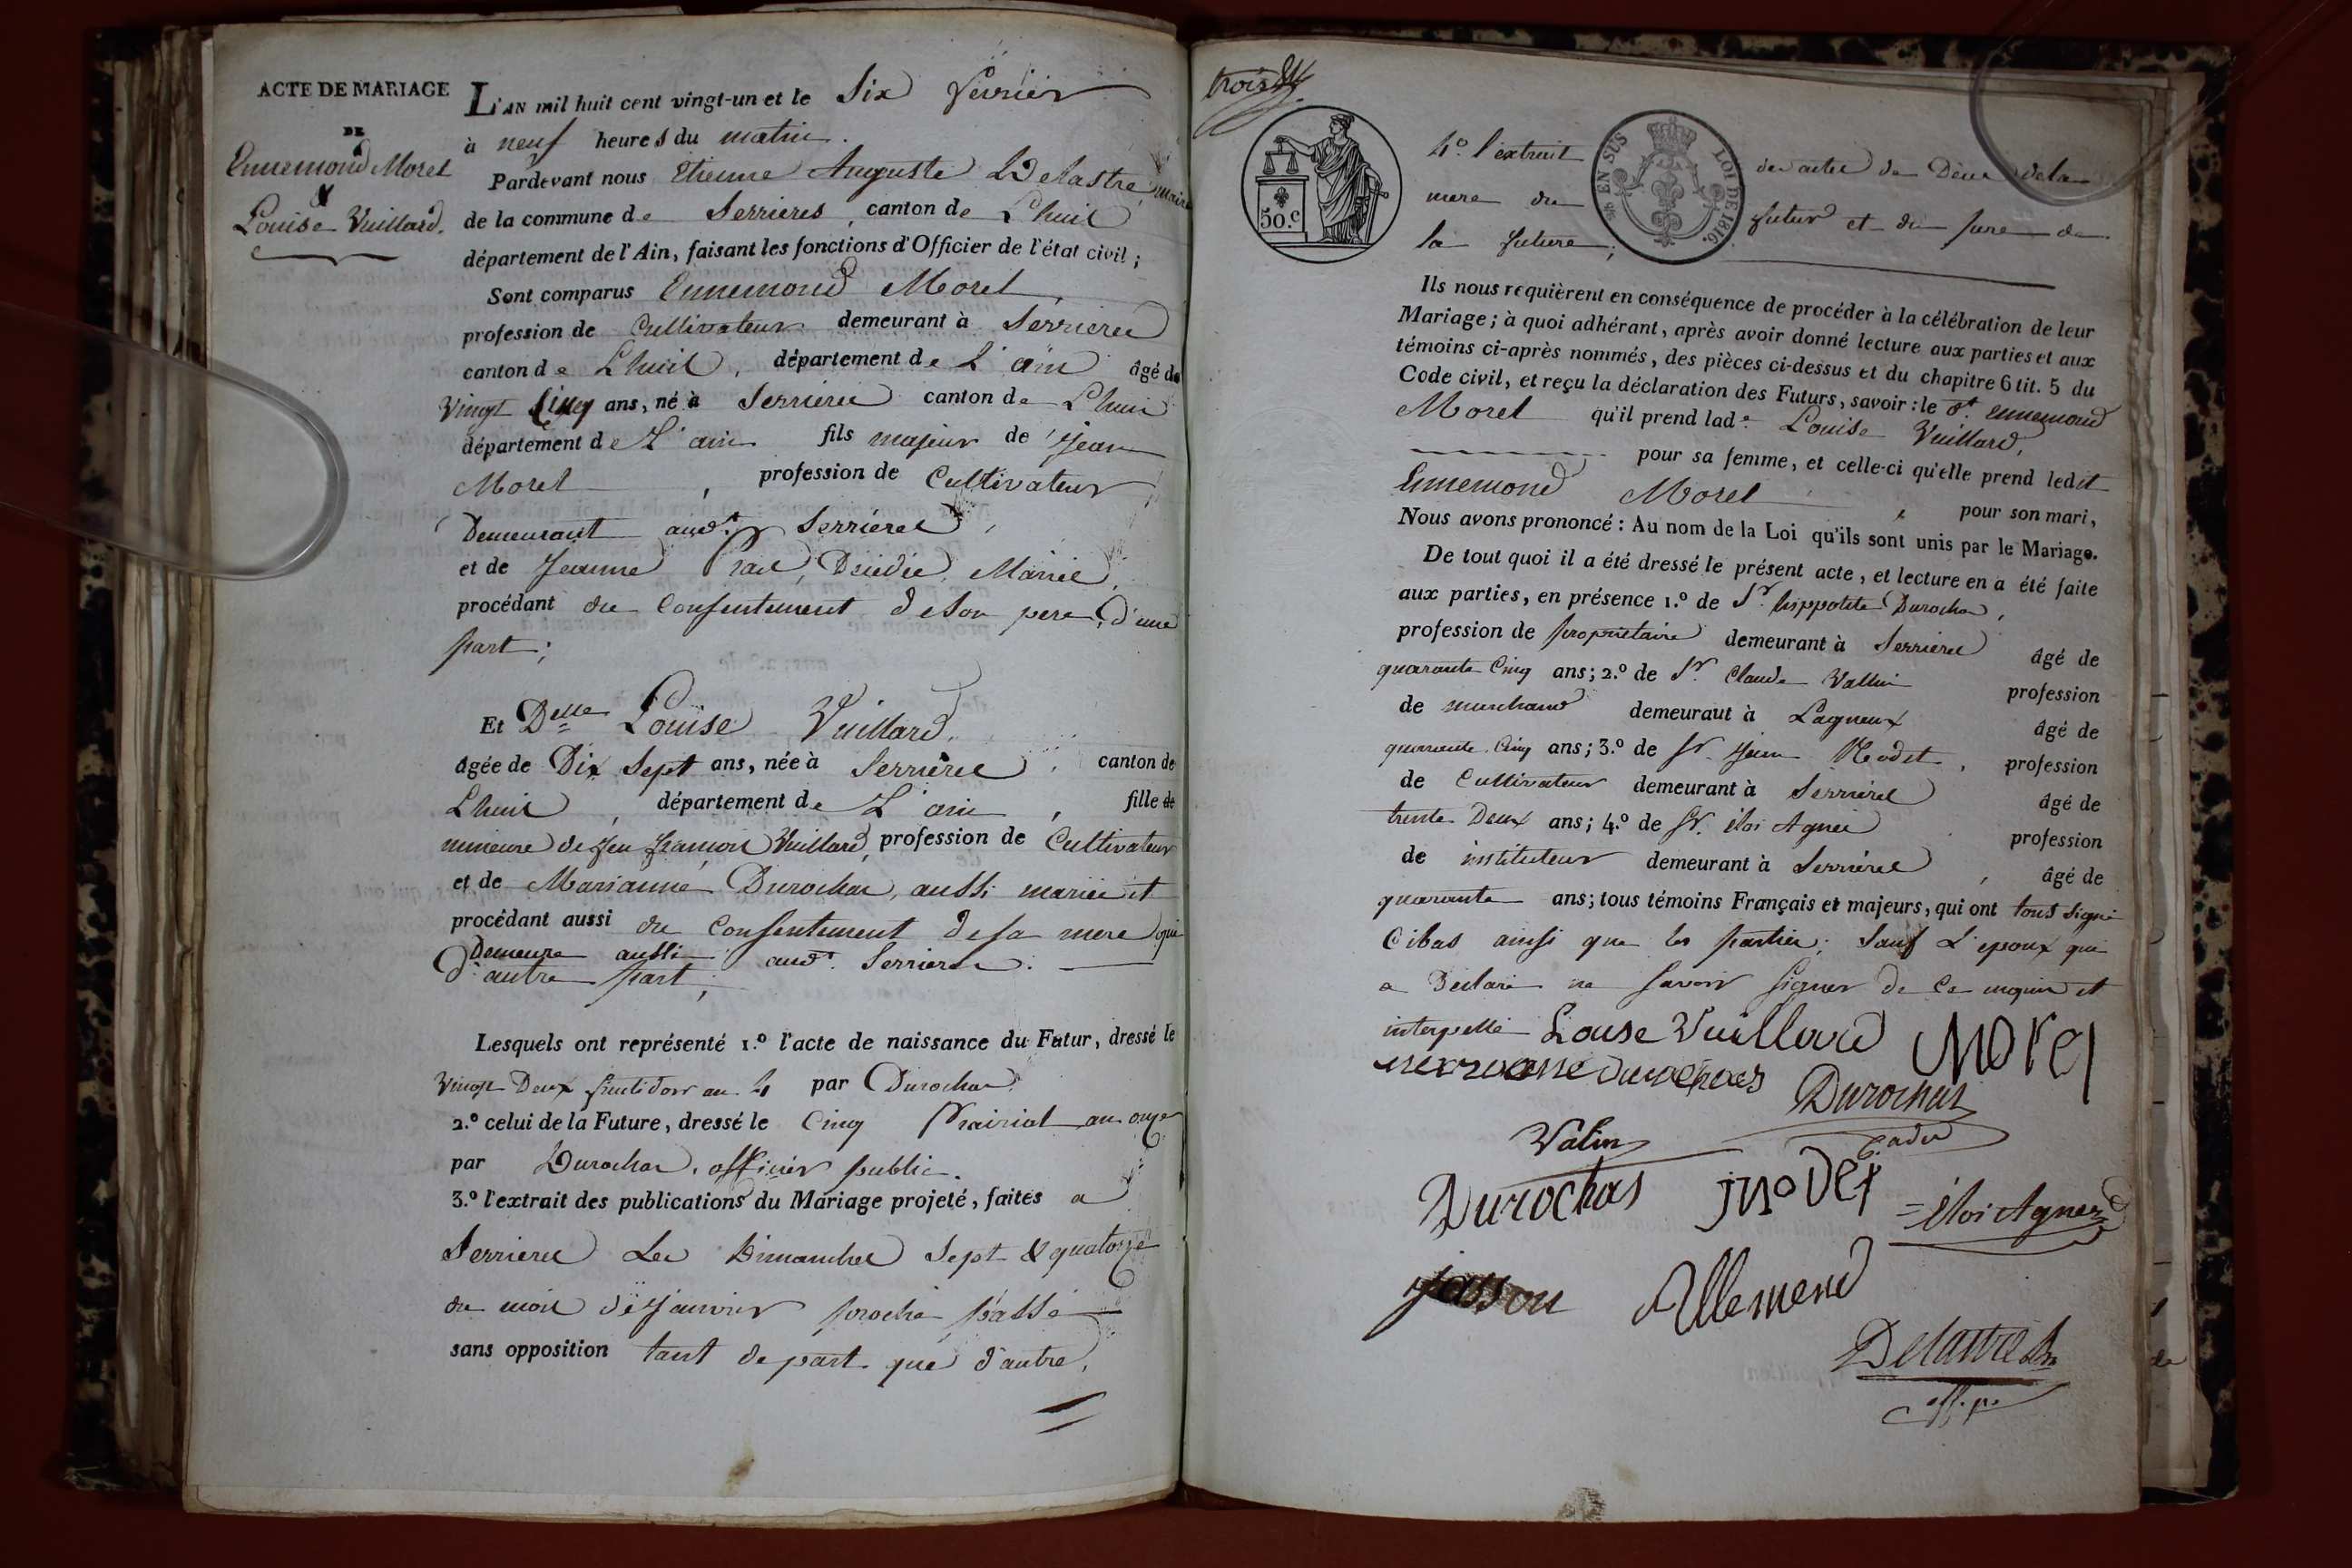 ACTE DE MARIAGE
DE
Ennemond Morel
&
Louise Vuillard.
L'AN mil huit cent vingt-un et le Six fevrier
à neuf heures du matin.
Pardevant nous Etienne Auguste Delastre, maire
de la commune de Serrieres, canton de Lhuis
département de l'Ain, faisant les fonctions d'Officier de l'état civil;
Sont comparus Ennemond Morel,
profession de Cultivateur demeurant à Serrieres
canton de Lhuis, département de L'ain âgé de
vingt Cinq ans, né à Serrieres canton de Lhuis
département de L'ain fils majeur de Jean
Morel, profession de Cultivateur
Demeurant aud.t Serrieres,
et de Jeanne Décédée, Mariés,
procédant du Consentement de son pere, d'une
part;
Et Delle Louise Vuillard,
âgée de Dix Sept ans, née à Serrieres, canton de
Lhuis, département de L'ain, fille de
mineure de feu françois Vuillard, profession de Cultivateur
et de Marianne Durochas, aussi mariés et
procédant aussi du Consentement de sa mere qui
Demeure aussi aud.t Serrieres.
D'autre part;
Lesquels ont représenté 1.º l'acte de naissance du Futur, dressé le
Vingt Deux fructidor an 4 par Durochas
2.º celui de la Future, dressé le Cinq Prairial an onze
par Durochas, officier public.
3.º l'extrait des publications du Mariage projeté, faites a
Serrieres Les Dimanches Sept & quatorze
du mois de Janvier proche passé
sans opposition tant de part que d'autre,
trois
50. c
EN SUS
LOI DE 1816.
4º. l'extrait des actes de Déces de la
mere du futur et du pere de
la future;
Ils nous requièrent en conséquence de procéder à la célébration de leur
Mariage; à quoi adhérant, après avoir donné lecture aux parties et aux
témoins ci-après nommés, des pièces ci-dessus et du chapitre 6 tit. 5 du
Code civil, et reçu la déclaration des Futurs, savoir: le d.t Ennemond
Morel qu'il prend lad.e Louise Vuillard,
pour sa femme, et celle-ci qu'elle prend ledit
Ennemond Morel, pour son mari,
Nous avons prononcé: Au nom de la Loi qu'ils sont unis par le Mariage.
De tout quoi il a été dressé le présent acte, et lecture en a été faite
aux parties, en présence 1.º de Sr. hippolite Durochas,
profession de propriétaire demeurant à Serrieres âgé de
quarante Cinq ans; 2.º de Sr. Claude Vallin profession
de marchand demeurant à Lagneux âgé de
quarante Cinq ans; 3.º de Sr. Jean Nodet, profession
de Cultivateur demeurant à Serrieres âgé de
trente Deux ans; 4.º de Sr. éloi Agnes profession
de instituteur demeurant à Serrieres, âgé de
quarante ans; tous témoins Français et majeurs, qui ont tous signé
Cibas ainsi que les parties; Sauf L'epoux qui
a Déclaré ne Savoir Signer de Ce enquis et
interpellé Louse Vuillard Morel
Durochas
Valin Cadet
Durochas j nodet éloi Agnes
jasson Allemend
Delastre
off. p.
de